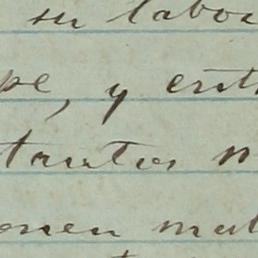 su labor
pe, y entr
tantos n
onen mul